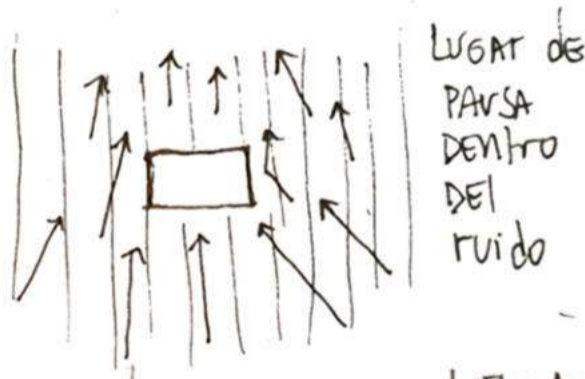 LUGAR de
PAUSA
DENTRO
DEL
ruido